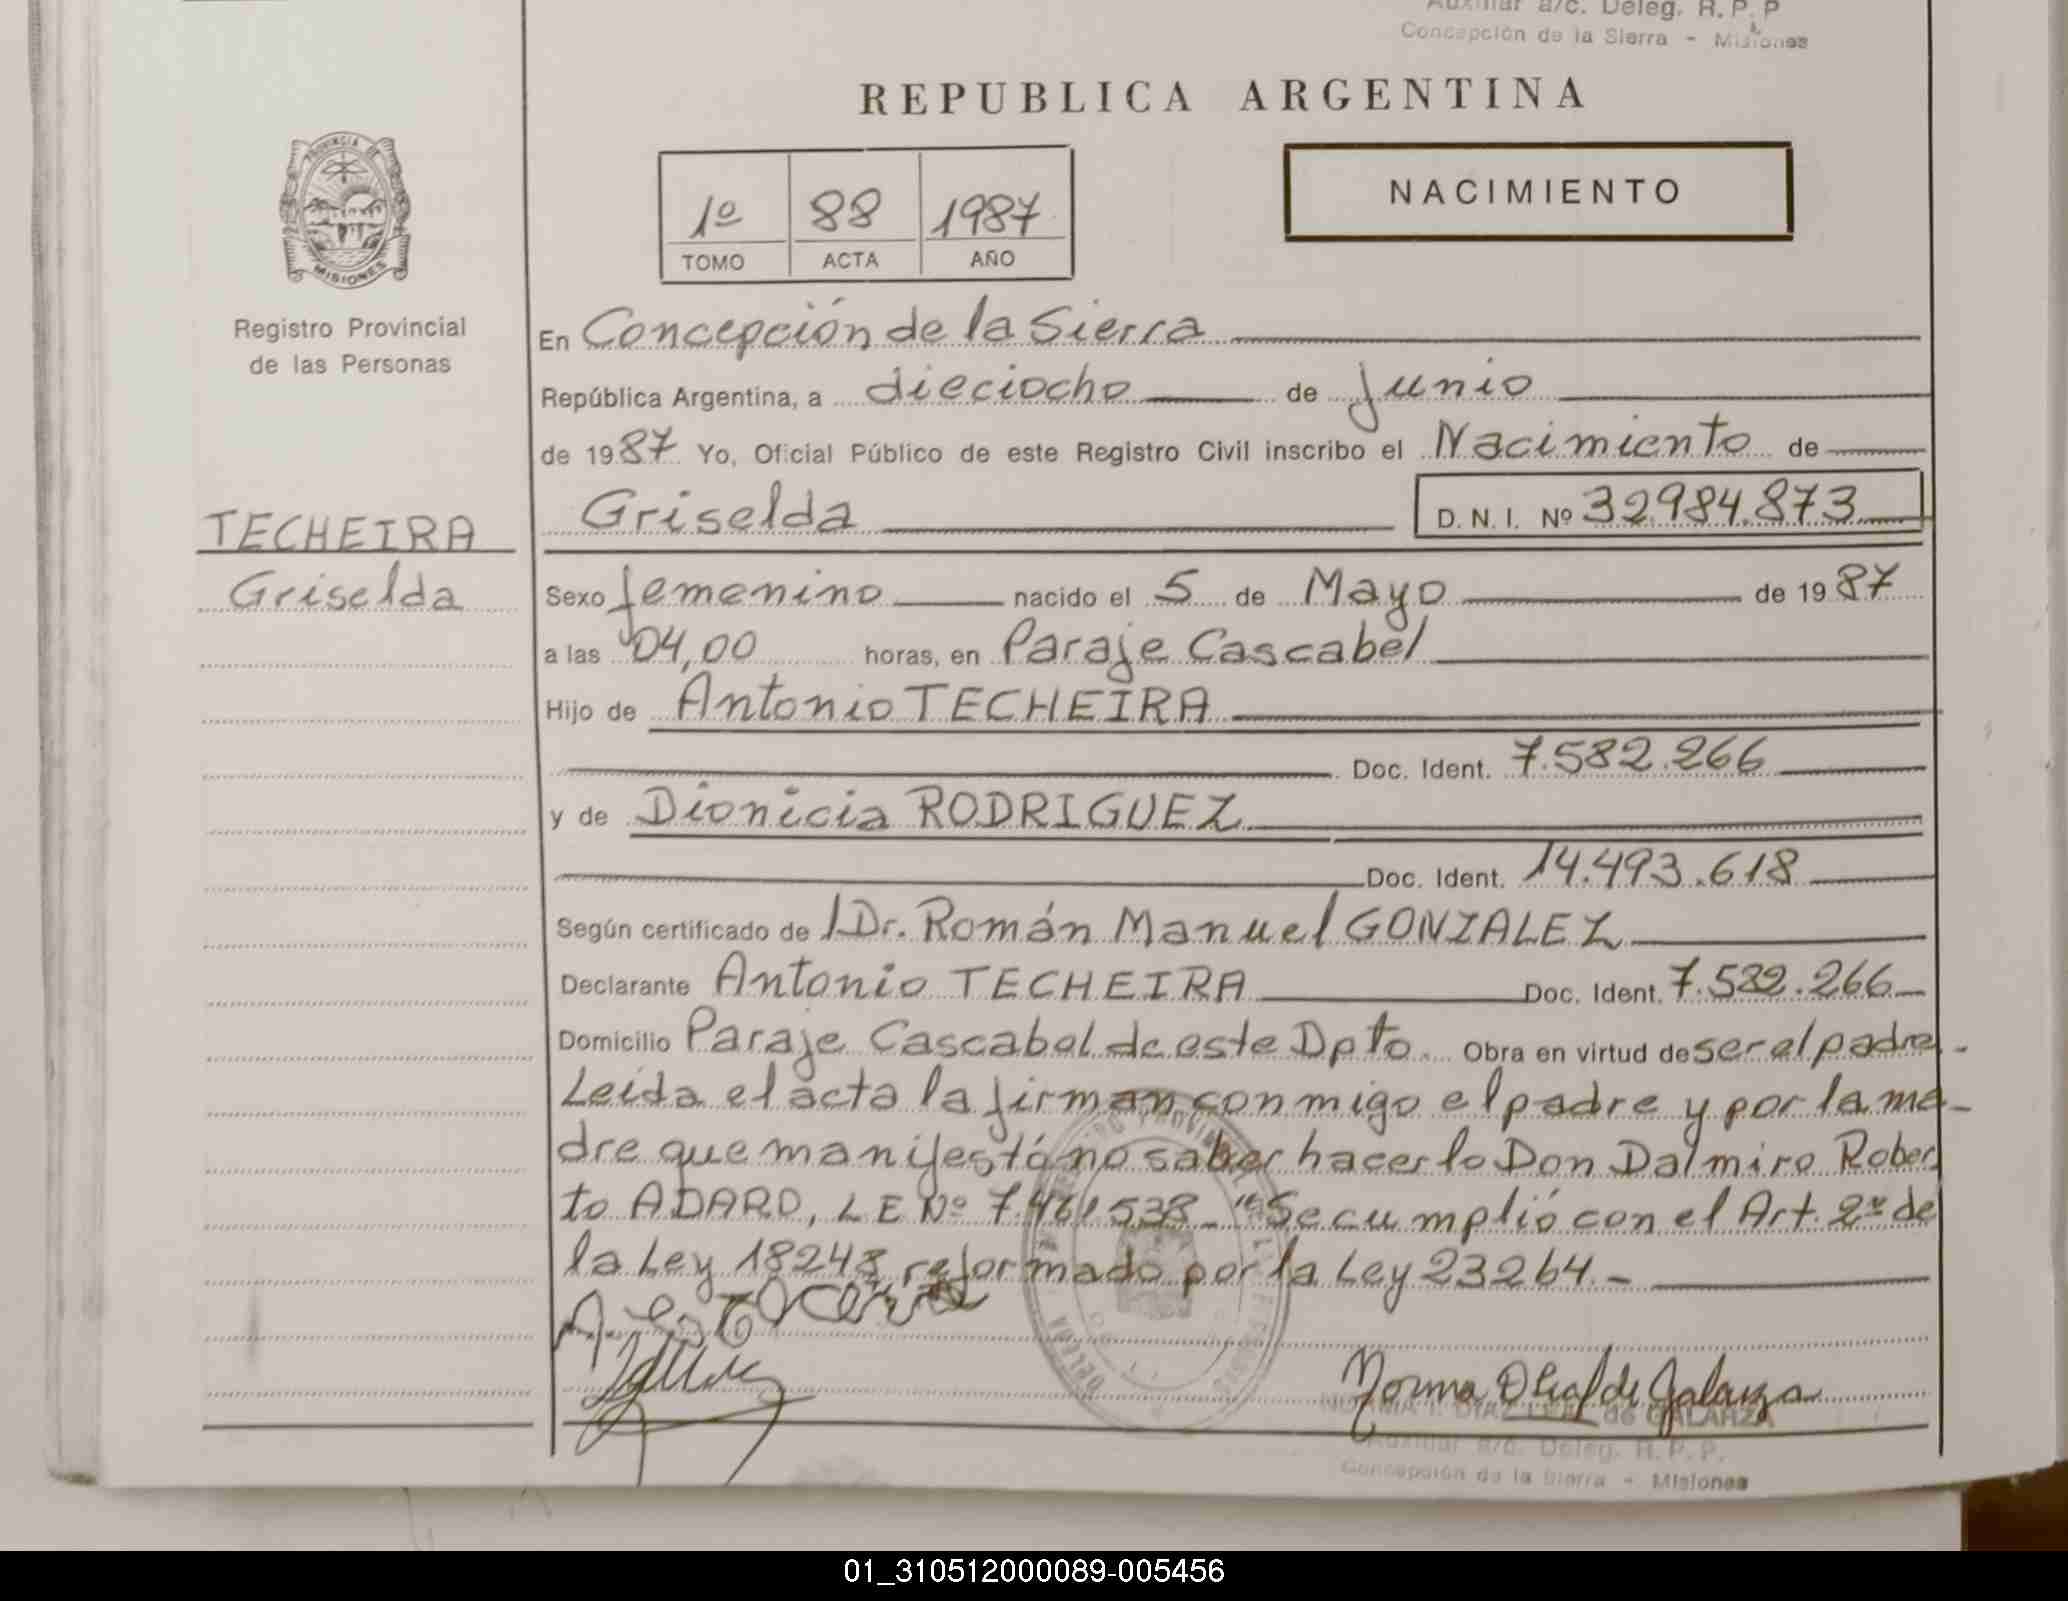 Auxiliar a/c. Deleg. R. P. P
Concepción de la Sierra - Misiones
REPUBLICA ARGENTINA
PROVINCIA DE
MISIONES
1º 88 1987
TOMO ACTA AÑO
NACIMIENTO
Registro Provincial
de las Personas
En Concepción de la Sierra
República Argentina, a dieciocho de junio
de 1987 Yo, Oficial Público de este Registro Civil inscribo el Nacimiento de
Griselda D. N. I. Nº 32.984.873
TECHEIRA
Griselda
Sexo femenino nacido el 5 de Mayo de 1987
a las 04,00 horas, en Paraje Cascabel
Hijo de Antonio TECHEIRA
Doc. Ident. 7.582.266
y de Dionicia RODRIGUEZ
Doc. Ident. 14.493.618
Según certificado de Dr. Román Manuel GONZALEZ
Declarante Antonio TECHEIRA Doc. Ident. 7.582.266
Domicilio Paraje Cascabel de este Dpto. Obra en virtud de ser el padre.-
Leída el acta la firman conmigo el padre y por la ma-
dre que manifestó no saber hacerlo Don Dalmiro Rober
to ADARO, L E Nº 7.461.538_ "Se cumplió con el Art. 2º de
la Ley 18248 reformado por la Ley 23264.-
Norma de Galarza
de GALARZA
Auxiliar a/c. Deleg. R. P. P.
Concepción de la Sierra - Misiones
01_310512000089-005456